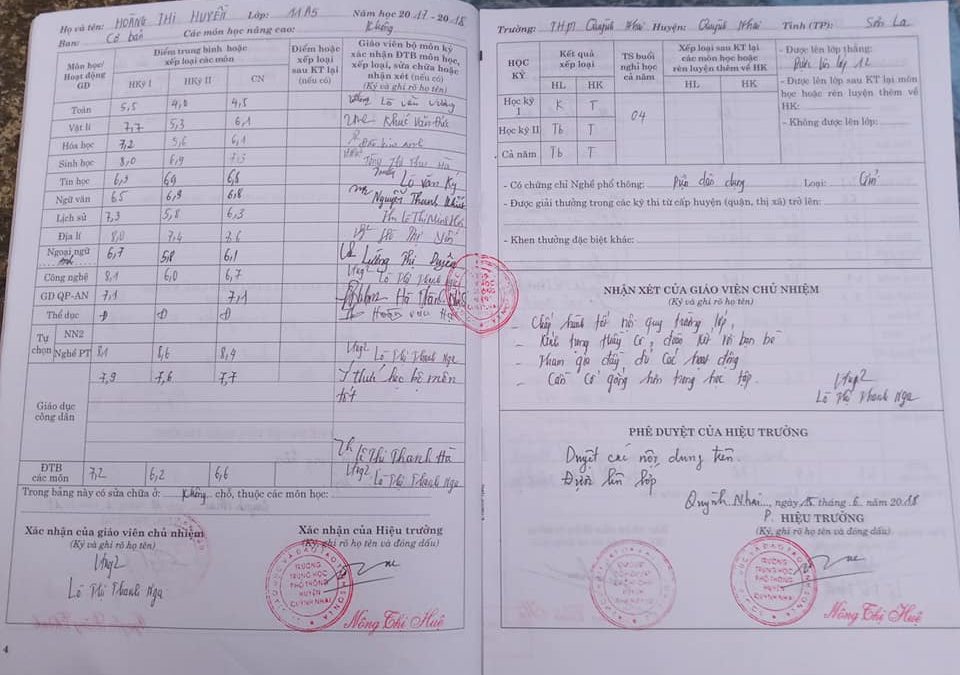 Họ và tên: HOÀNG THỊ HUYỀN Lớp: 11A5 Năm học 2017 - 2018
Ban: Cơ bản Các môn học nâng cao: Không
Môn học/ Hoạt động GD
Điểm trung bình hoặc xếp loại các môn
HKỳ I HKỳ II CN
Điểm hoặc xếp loại sau KT lại (nếu có)
Giáo viên bộ môn ký xác nhận ĐTB môn học, xếp loại, sửa chữa hoặc nhận xét (nếu có)
(Ký và ghi rõ họ tên)
Toán 5,5 4,0 4,5 Lò Văn
Vật lí 7,7 5,3 6,1 Khuc Văn
Hóa học 7,2 5,6 6,1
Sinh học 8,0 6,9 7,3
Tin học 6,9 6,9 6,8 Lò Văn
Ngữ văn 6,5 6,9 6,8 Nguyễn Thanh
Lịch sử 7,3 5,8 6,3 Lê Thị Minh
Địa lí 8,0 7,4 7,6
Ngoại ngữ 6,7 5,8 6,1 Lường Thị Duyên
Công nghệ 8,1 6,0 6,7 Lò Thị Thanh Nga
GD QP-AN 7,1 7,1
Thể dục Đ Đ Đ
Tự chọn
NN2
Nghề PT 8,1 8,6 8,4 Lò Thị Thanh Nga
Giáo dục công dân 7,9 7,6 7,7 Ý thức học bộ môn
tốt
Lê Thị Thanh Hà
ĐTB các môn 7,2 6,2 6,6 Lò Thị Thanh Nga
Trong bảng này có sửa chữa ở: không chỗ, thuộc các môn học:
Xác nhận của giáo viên chủ nhiệm
(Ký và ghi rõ họ tên)
Lò Thị Thanh Nga
Xác nhận của Hiệu trưởng
(Ký, ghi rõ họ tên và đóng dấu)
TRƯỜNG
TRUNG HỌC
PHỔ THÔNG
HUYỆN
QUỲNH NHAI
Nông Thị Huệ
4
Trường: THPT Quỳnh Nhai Huyện: Quỳnh Nhai Tỉnh (TP): Sơn La
HỌC KỲ
Kết quả xếp loại
HL HK
TS buổi nghỉ học cả năm
Xếp loại sau KT lại các môn học hoặc rèn luyện thêm về HK
HL HK
Học kỳ I K T
Học kỳ II Tb T
Cả năm Tb T
04
- Được lên lớp thẳng:
Được lên lớp 12
- Được lên lớp sau KT lại môn học hoặc rèn luyện thêm về HK:
- Không được lên lớp:
- Có chứng chỉ Nghề phổ thông: Điện dân dụng Loại: Giỏi
- Được giải thưởng trong các kỳ thi từ cấp huyện (quận, thị xã) trở lên:
- Khen thưởng đặc biệt khác:
NHẬN XÉT CỦA GIÁO VIÊN CHỦ NHIỆM
(Ký và ghi rõ họ tên)
- Chấp hành tốt nội quy trường lớp,
- Kính trọng thầy cô, đoàn kết với bạn bè
- Tham gia đầy đủ các hoạt động
- Cần cố gắng hơn trong học tập.
Lò Thị Thanh Nga
PHÊ DUYỆT CỦA HIỆU TRƯỞNG
Duyệt các nội dung trên
Được lên lớp
Quỳnh Nhai, ngày 15 tháng 6 năm 2018
P. HIỆU TRƯỞNG
(Ký, ghi rõ họ tên và đóng dấu)
TRƯỜNG
TRUNG HỌC
PHỔ THÔNG
HUYỆN
QUỲNH NHAI
Nông Thị Huệ